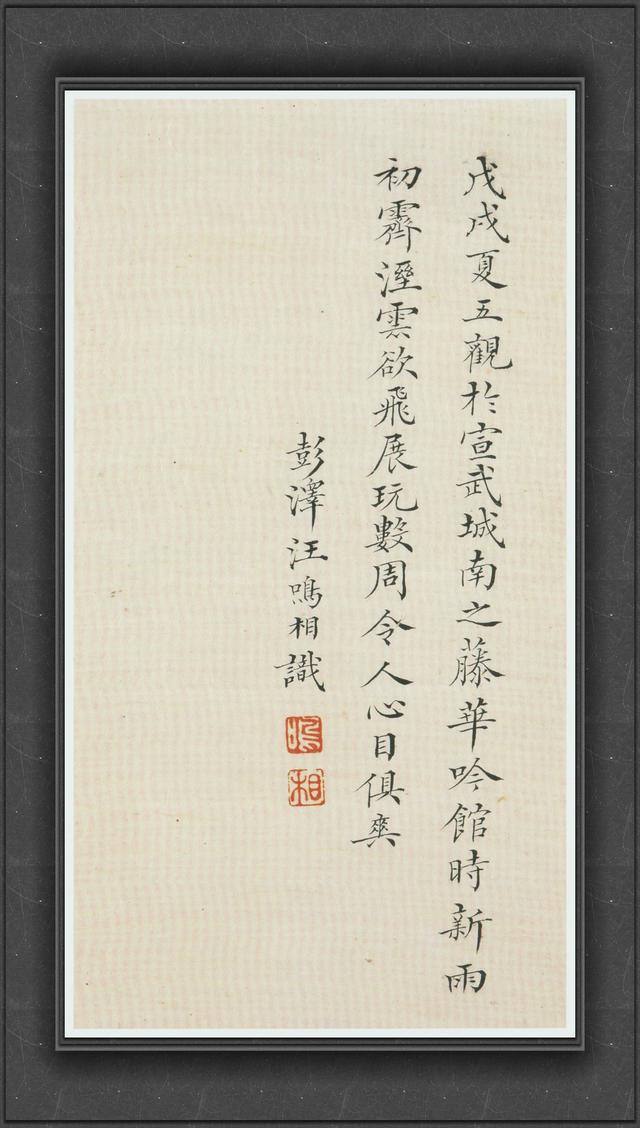 戊戌夏五觀於宣武城南之藤華吟館時新雨
初霽溼雲欲飛展玩數周令人心目俱爽
彭澤汪鳴相識
鳴
相